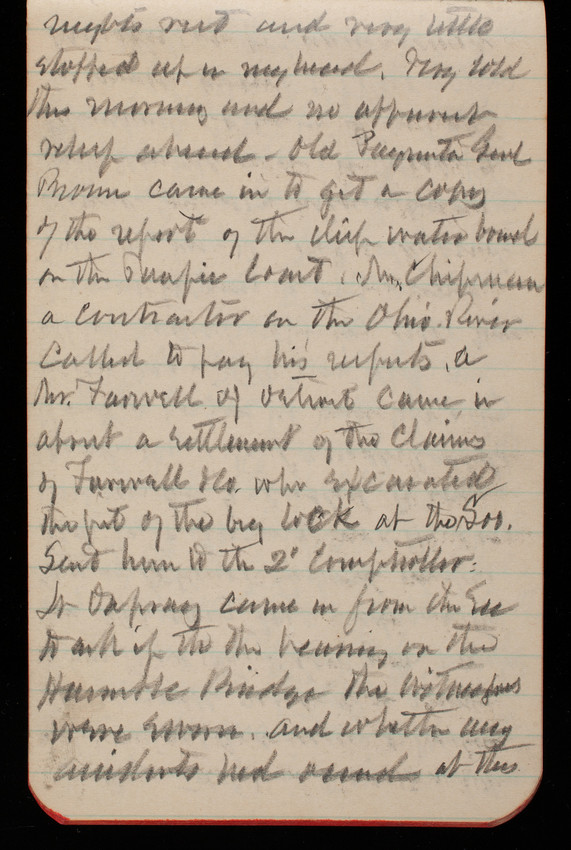 nights rest and very little
stopped up in my head. Very cold
this morning and no apparent
relief ahead. Old Paymaster Genl
Brown came in to get a copy
of the report of the deep water board
on the Pacific Coast. Mr. Chipman
a contractor on the Ohio River
called to pay his respects. a
Mr. Farwell of Detroit came in
about a settlement of the Claims
of Farwell &Co. who excavated
the pit of the big lock at the Soo.
Sent him to the 2d Comptroller.
Lt came in from the Sec
to ask if the hearing on the
Bridge the witnesses
were sworn. and whether any
accidents had occurred at this